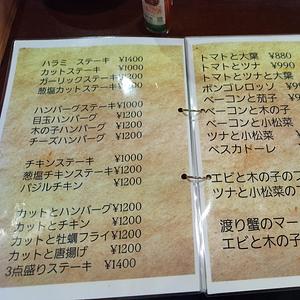 ハラミ ステーキ ¥1400
カットステーキ ¥1000
ガーリックステーキ ¥1200
葱塩カットステーキ ¥1200
ハンバーグステーキ ¥1000
目玉ハンバーグ ¥1200
木の子ハンバーグ ¥1200
チーズハンバーグ ¥1200
チキンステーキ ¥1000
葱塩チキンステーキ ¥1200
バジルチキン ¥1200
カットとハンバーグ ¥1200
カットとチキン ¥1200
カットと牡蠣フライ ¥1200
カットと唐揚げ ¥1200
3点盛りステーキ ¥1400
トマトと大葉 ¥880
トマトとツナ ¥990
トマトとツナと大葉
ボンゴレロッソ
ベーコンと茄子
ベーコンと木の子
ベーコンと小松菜
ツナと小松菜
ペスカドーレ
エビと木の子の
ツナと小松菜の
渡り蟹のマー
エビと木の子